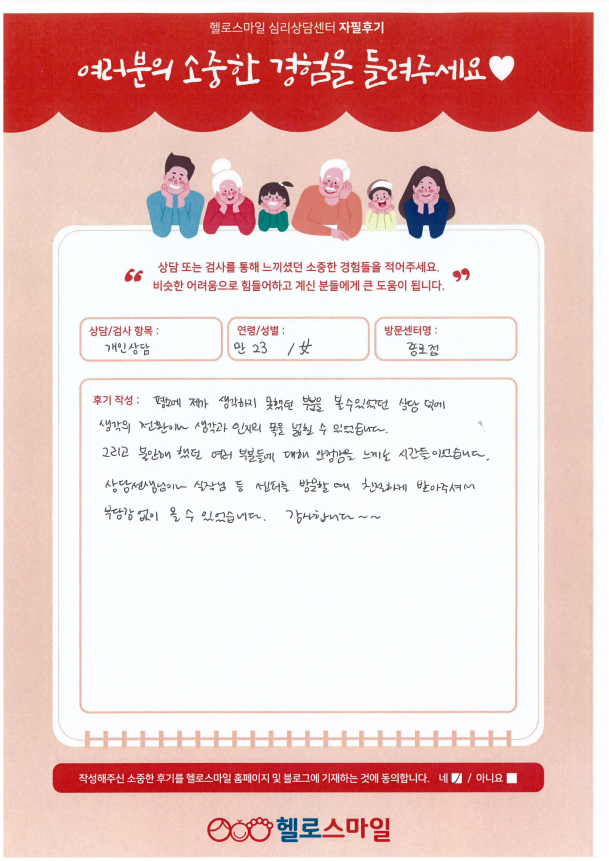 헬로스마일 심리상담센터 자필후기
여러분의 소중한 경험을 들려주세요♥
“ 상담 또는 검사를 통해 느끼셨던 소중한 경험들을 적어주세요. ”
비슷한 어려움으로 힘들어하고 계신 분들에게 큰 도움이 됩니다.
상담/검사 항목 :
개인상담
연령/성별 :
만 23 / 女
방문센터명 :
종로점
후기 작성 : 평소에 제가 생각하지 못했던 부분을 볼 수 있었던 상담 덕에
생각의 전환이나 생각과 인지의 폭을 넓힐 수 있었습니다.
그리고 불안해 했던 여러 부분들에 대해 안정감을 느끼는 시간들이었습니다.
상담선생님이나 실장님 등 센터를 방문할 때 친절하게 받아주셔서
부담감 없이 올 수 있었습니다. 감사합니다~~
작성해주신 소중한 후기를 헬로스마일 홈페이지 및 블로그에 기재하는 것에 동의합니다. 네 / 아니요
헬로스마일